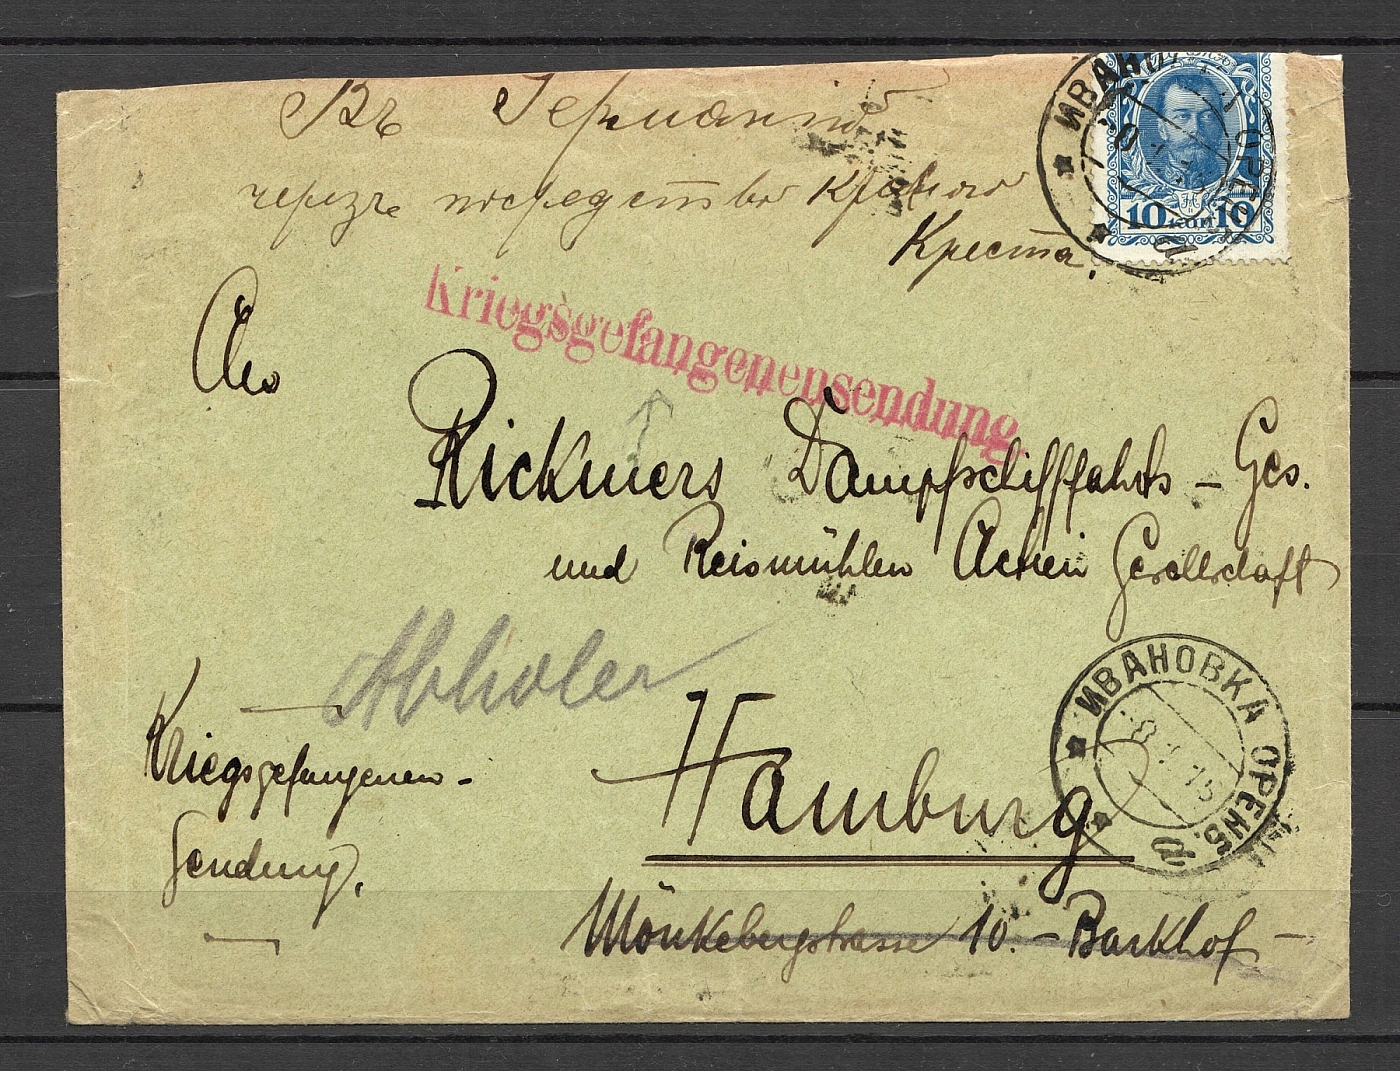 Въ Германію
черезъ посредство Краснаго
Креста.
ИВАНОВКА ОРЕНБ.
10 КОП 10
Kriegsgefangenensendung
An
Rickmers Dampfschifffahrts - Ges.
und Reismühlen Actien Gesellschaft
Abholer
Kriegsgefangenen-
Sendung.
Hamburg
ИВАНОВКА ОРЕНБ.
8 1 15
Mönkebergstrasse 10. - Barkhof -